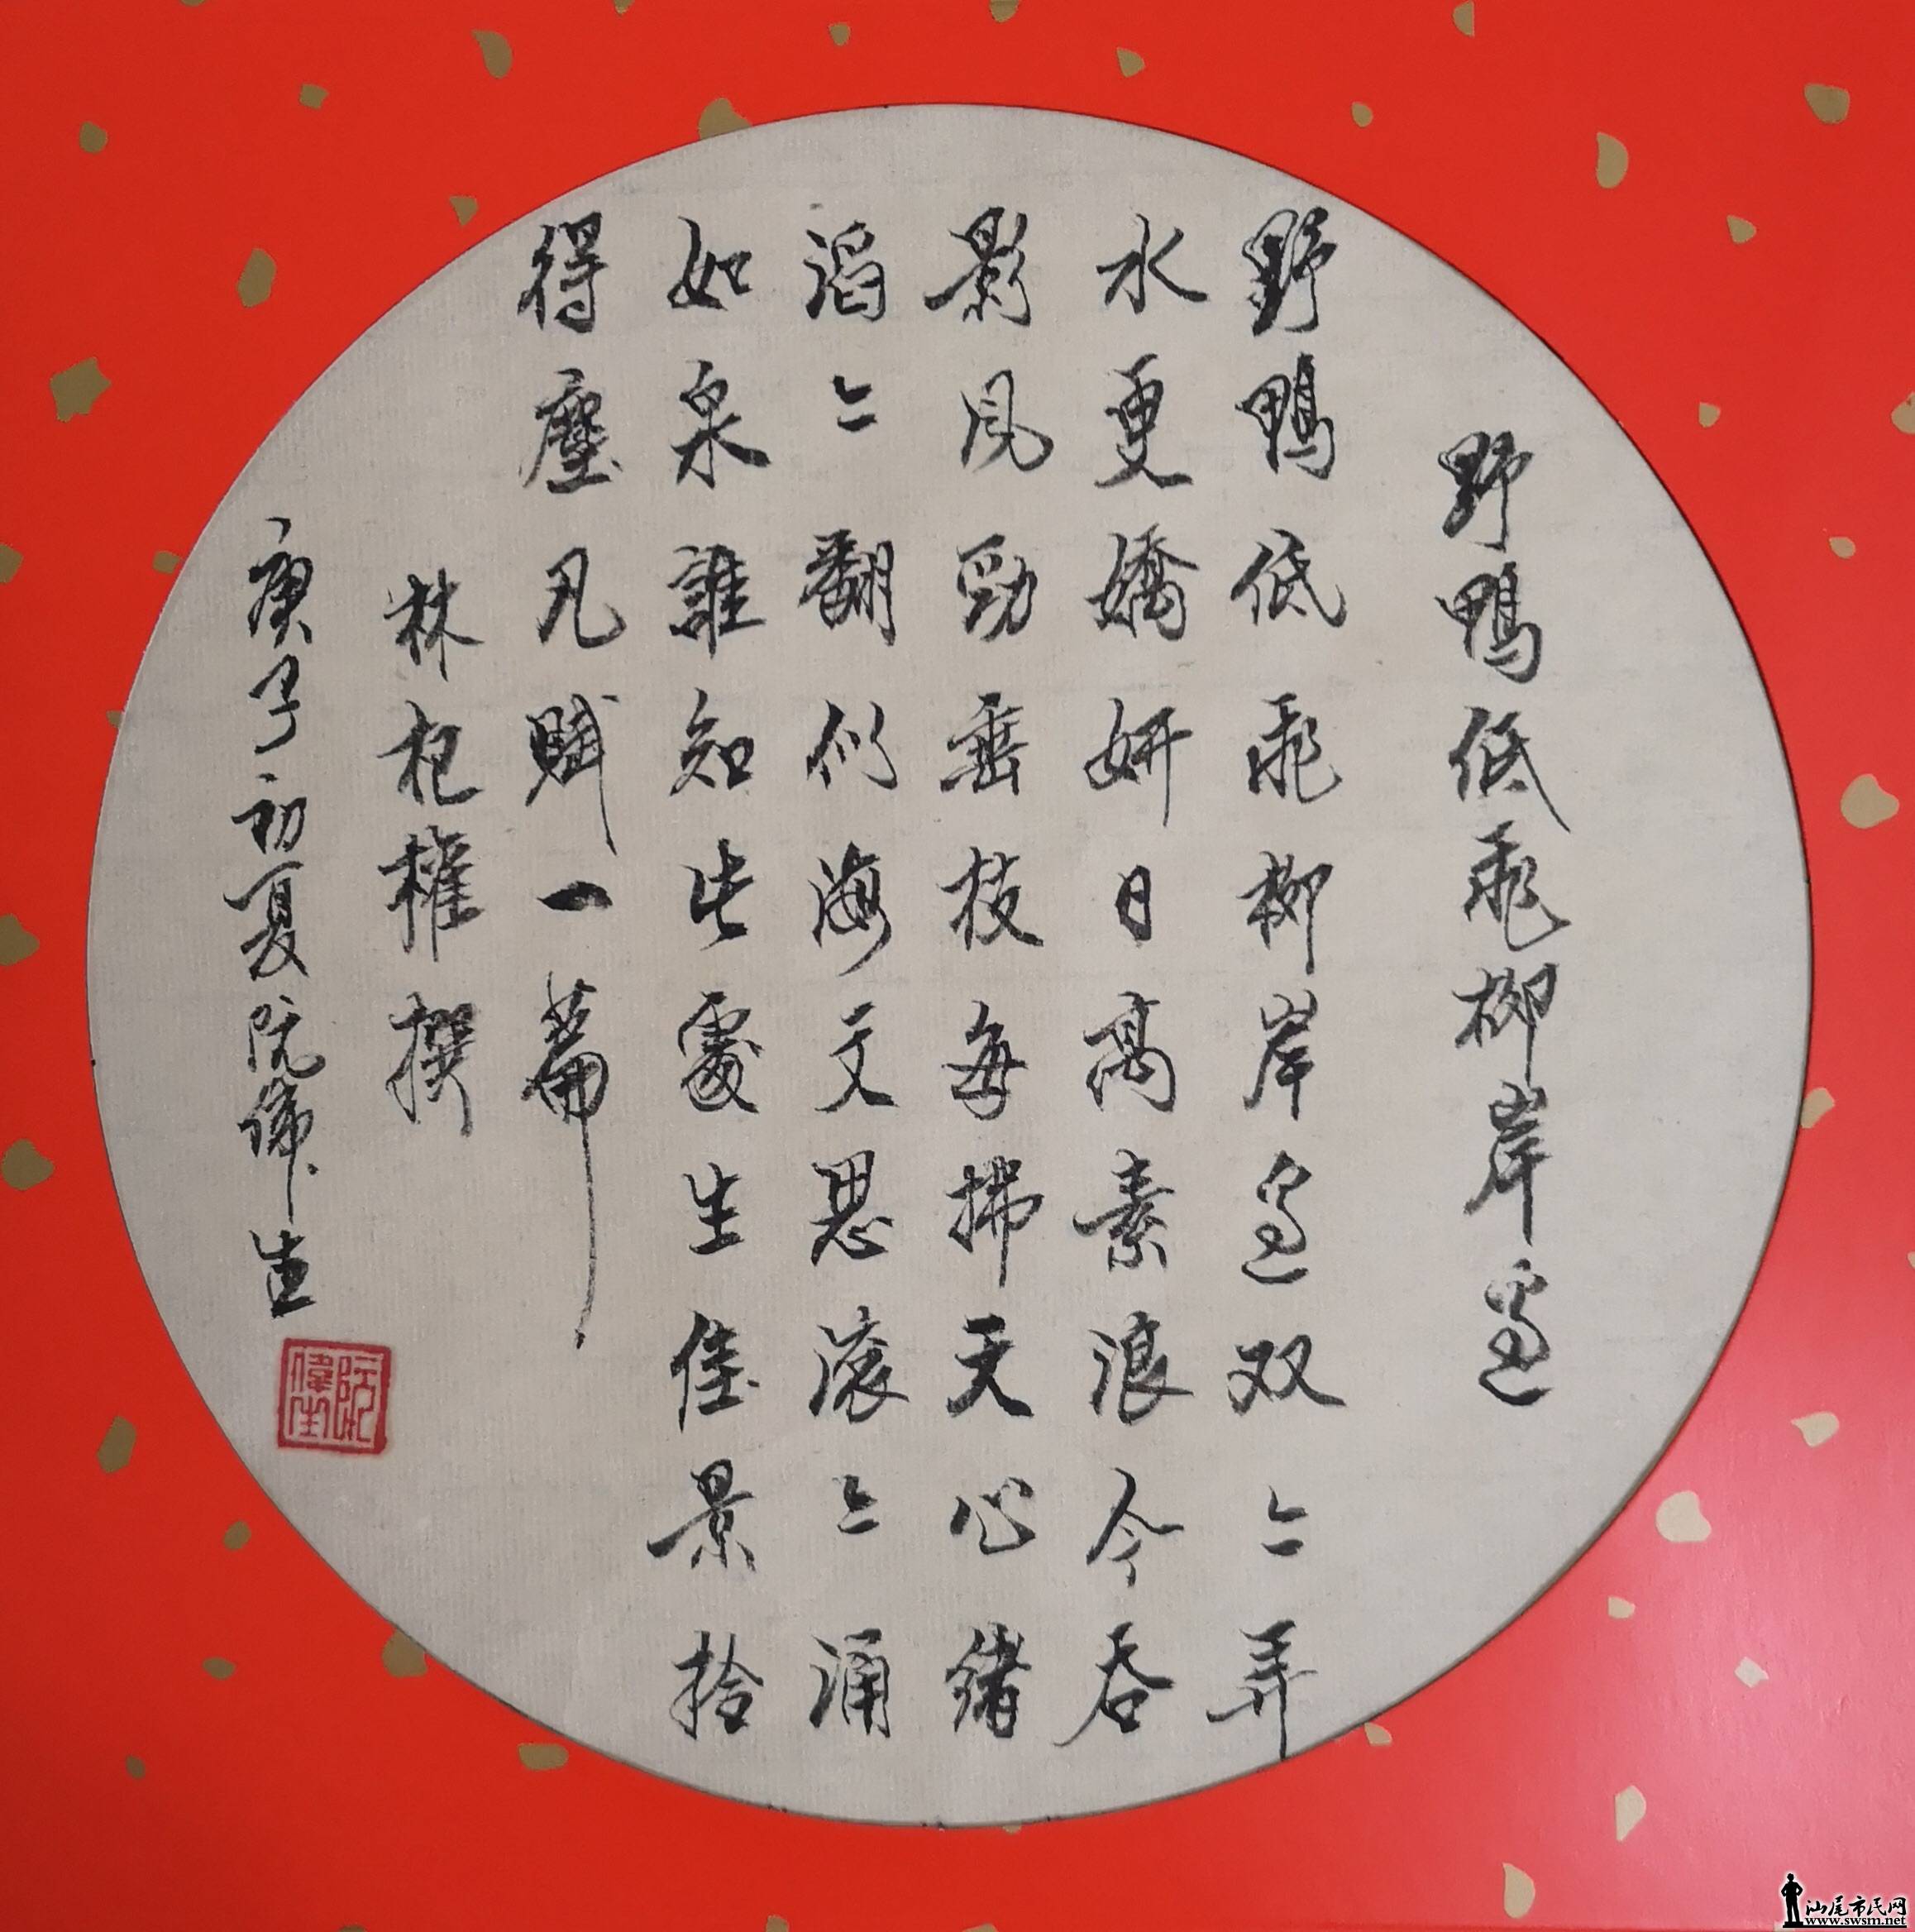 野鴨低飛柳岸邊
野鴨低飛柳岸邊双〻弄
水更嬌妍日高素浪今吞
影風勁垂枝每拂天心緒
滔〻翻似海文思滾〻涌
如泉誰知此處生佳景拾
得塵凡賦一篇
林杞權撰
庚子初夏阮偉生
阮偉生
汕尾市民网
www.swsm.net